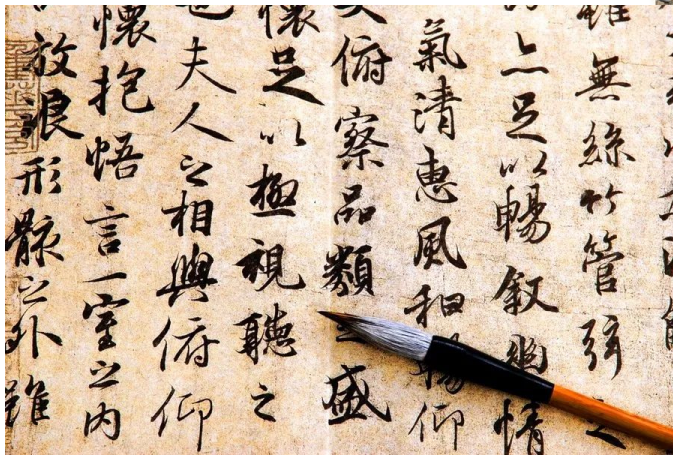 雖無絲竹管弦之
亦足以暢敘幽情
氣清惠風和暢仰
大俯察品類之盛
懷足以極視聽之
也夫人之相與俯仰
懷抱悟言一室之內
放浪形骸之外雖